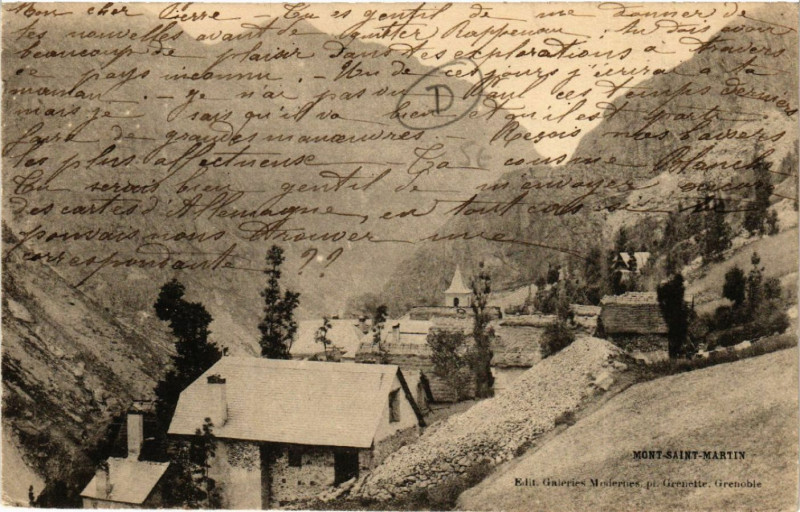 Mon cher Pierre - Tu es gentil de me donner de
tes nouvelles avant de quitter Rappenau. Tu dois avoir
beaucoup de plaisir dans tes explorations à travers
ce pays inconnu. - Un de ces jours j'écrirai à ta
maman. - Je n'ai pas vu Paul ces temps derniers
mais je sais qu'il va bien et qu'il est parti
faire de grandes manœuvres. - Reçois mes baisers
les plus affectueux Ta cousine Blanche
Tu serais bien gentil de m'envoyer
des cartes d'Allemagne, en tout cas
pouvais nous trouver une
correspondante ??
D
MONT-SAINT-MARTIN
Edit. Galeries Modernes, pl. Grenette, Grenoble